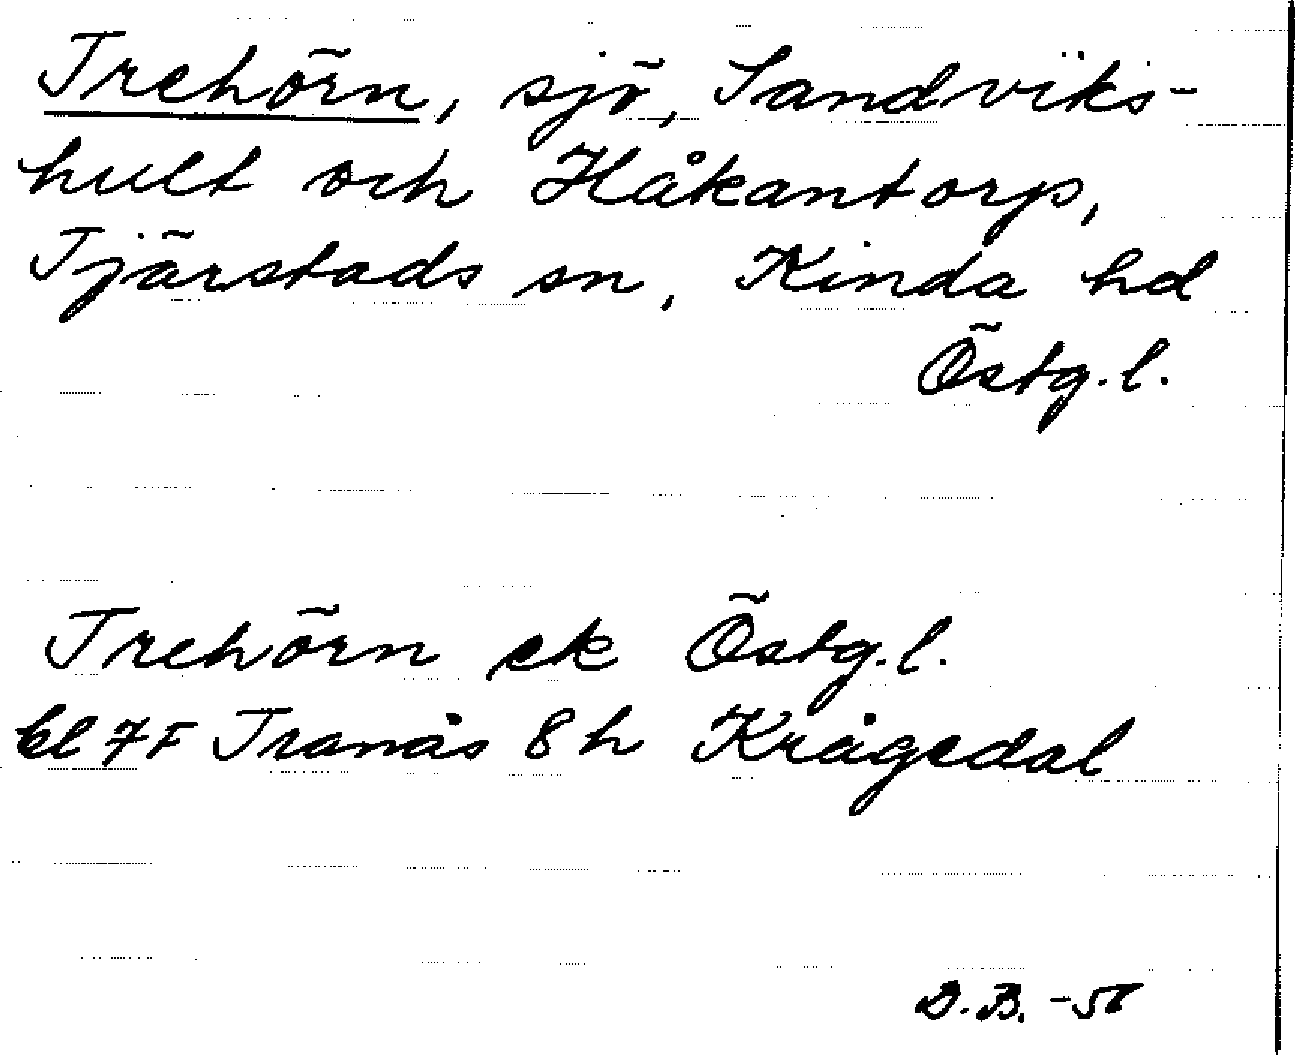 Trehörn, sjö, Sandviks-
hult och Håkantorp,
Tjärstads sn, Kinda hd
Östg.l.
Trehörn ek Östg.l.
bl 7F Tranås 8h Krågedal
D.B. -58